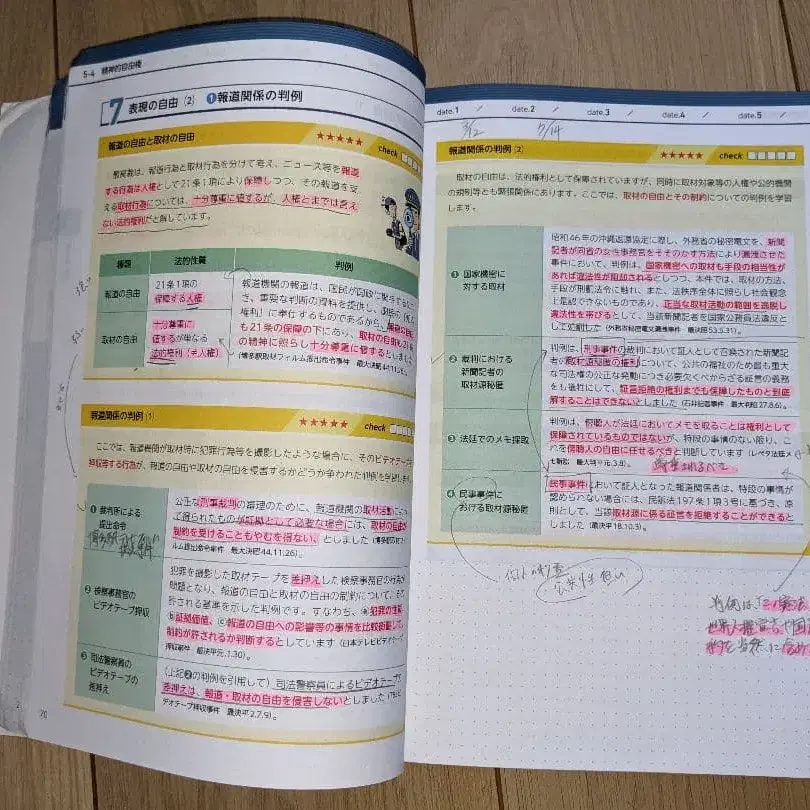 5-4 精神的自由権
7 表現の自由(2) ❶報道関係の判例
報道の自由と取材の自由 ★★★★★ check
判例は、報道行為と取材行為を分けて考え、ニュース等を報道
する行為は人権として21条1項により保障しつつ、その報道を支
える取材行為については、十分尊重に値するが、人権とまでは言え
ない法的権利だと解しています。
種類 法的性質 判例
報道の自由 21条1項の
保障する人権
取材の自由 十分尊重に
値するが単なる
法的権利(≠人権)
報道機関の報道は、国民が国政に関与するに
き、重要な判断の資料を提供し、
権利」に奉仕するものであるから、
も21条の保障の下にあり、取材の自由も
の精神に照らし十分尊重に値するとしまし
(博多駅取材フィルム提出命令事件 最大決昭44.11.
報道関係の判例(1) ★★★★★ check
ここでは、報道機関が取材時に犯罪行為等を撮影したような場合に、そのビデオテープ
押収等する行為が、報道の自由や取材の自由を侵害するかどうか争われた判例を学習しま
❶ 裁判所による
提出命令
公正な刑事裁判の審理のために、報道機関の取材活動に
て得られたものが証拠として必要な場合には、取材の自由が
制約を受けることもやむを得ない、としました(博多駅
ルム提出命令事件 最大決昭44.11.26)。
❷ 検察事務官の
ビデオテープ押収
犯罪を撮影した取材テープを差押えした検察事務官の行為が
問題となり、取材の自由と取材の自由の制約について、
許される基準を示した判例です。すなわち、ⓐ犯罪の性質、
ⓑ証拠価値、ⓒ報道の自由への影響等の事情を比較衡量して、
制約が許されるか判断するとしています(日本テレビビデオテープ
押収事件 最決平元.1.30)。
❸ 司法警察員の
ビデオテープの
差押え
(上記❷の判例を引用して)司法警察員によるビデオテープ
差押えは、報道・取材の自由を侵害しないとしました(TBSビ
デオテープ押収事件 最決平2.7.9)。
70
date.1 / date.2 / date.3 / date.4 / date.5 /
3/12 7/14
報道関係の判例(2) ★★★★★ check
取材の自由は、法的権利として保障されていますが、同時に取材対象等の人権や公的機関
の規制等とも緊張関係にあります。ここでは、取材の自由とその制約についての判例を学習
します。
❶ 国家機密に
対する取材
昭和46年の沖縄返還協定に際し、外務省の秘密電文を、新聞
記者が同省の女性事務官をそそのかす方法により漏洩させた
事件において、判例は、国家機密への取材も手段の相当性が
あれば違法性が阻却されるとしつつ、本件では、取材の方法、
手段が刑罰法令に触れ、また、法秩序全体に照らし社会観念
上是認できないものであり、正当な取材活動の範囲を逸脱し
違法性を帯びるとして、当該新聞記者を国家公務員法違反と
して処罰した(外務省秘密電文漏洩事件 最決昭53.5.31)。
❷ 裁判における
新聞記者の
取材源秘匿
判例は、刑事事件の裁判において証人として召喚された新聞記
者の取材源秘匿の権利について、公共の福祉のため最も重大
な司法権の公正な発動につき必要欠くべからざる証言の義務
をも犠牲にして、証言拒絶の権利までも保障したものと到底
解することはできないとしました(石井記者事件 最大判昭27.8.6)。
❸ 法廷でのメモ採取
判例は、傍聴人が法廷においてメモを取ることは権利として
保障されているものではないが、特段の事情のない限り、こ
れを傍聴人の自由に任せるべきと判断しています(レペタ法廷メ
モ訴訟 最大判平元.3.8)。
尊重されるべき
❹ 民事事件に
おける取材源秘匿
民事事件において証人となった報道関係者は、特段の事情が
認められない場合には、民訴法197条1項3号に基づき、原
則として、当該取材源に係る証言を拒絶することができると
しました(最決平18.10.3)。